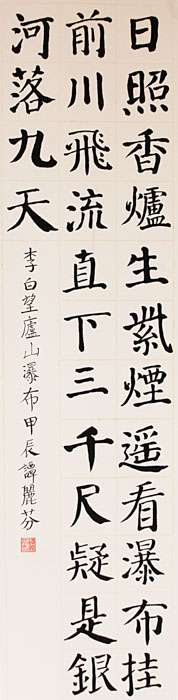 日照香爐生紫煙遥看瀑布挂
前川飛流直下三千尺疑是銀
河落九天
李白望廬山瀑布甲辰譚麗芬